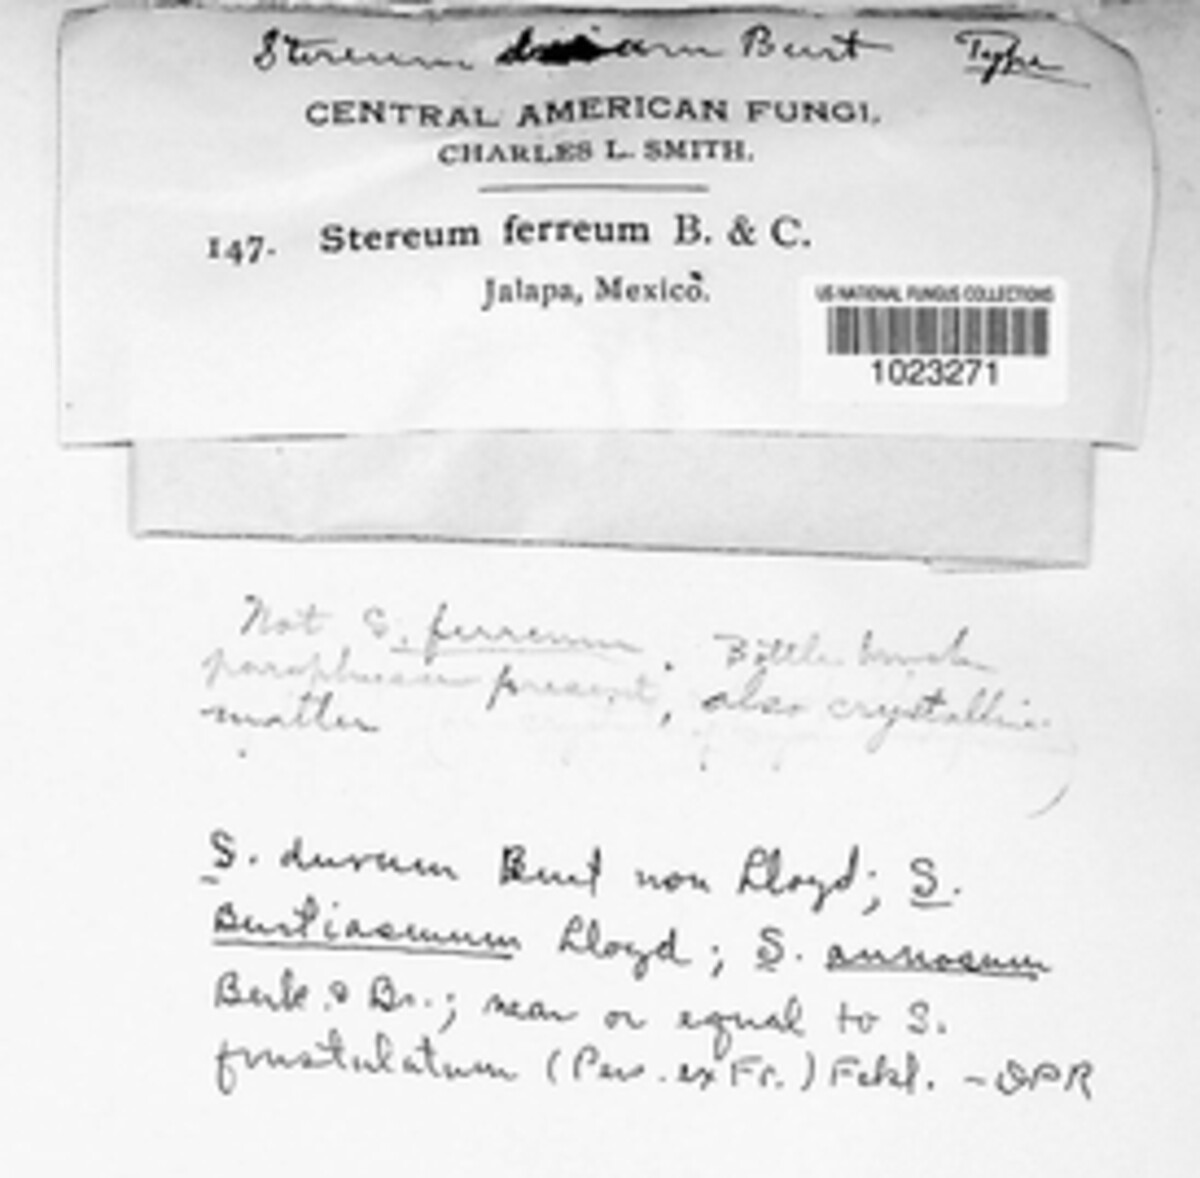 Stereum durum Burt Type
CENTRAL AMERICAN FUNGI.
CHARLES L. SMITH.
147. Stereum ferreum B. & C.
Jalapa, Mexico.
US NATIONAL FUNGUS COLLECTIONS
1023271
Not S. ferreum. Bottle brush
paraphyses present, also crystalline
matter
S. durum Burt non Lloyd; S.
Burtianum Lloyd; S. annosum
Berk. & Br.; near or equal to S.
frustulatum (Pers. ex Fr.) Fckl. - DPR